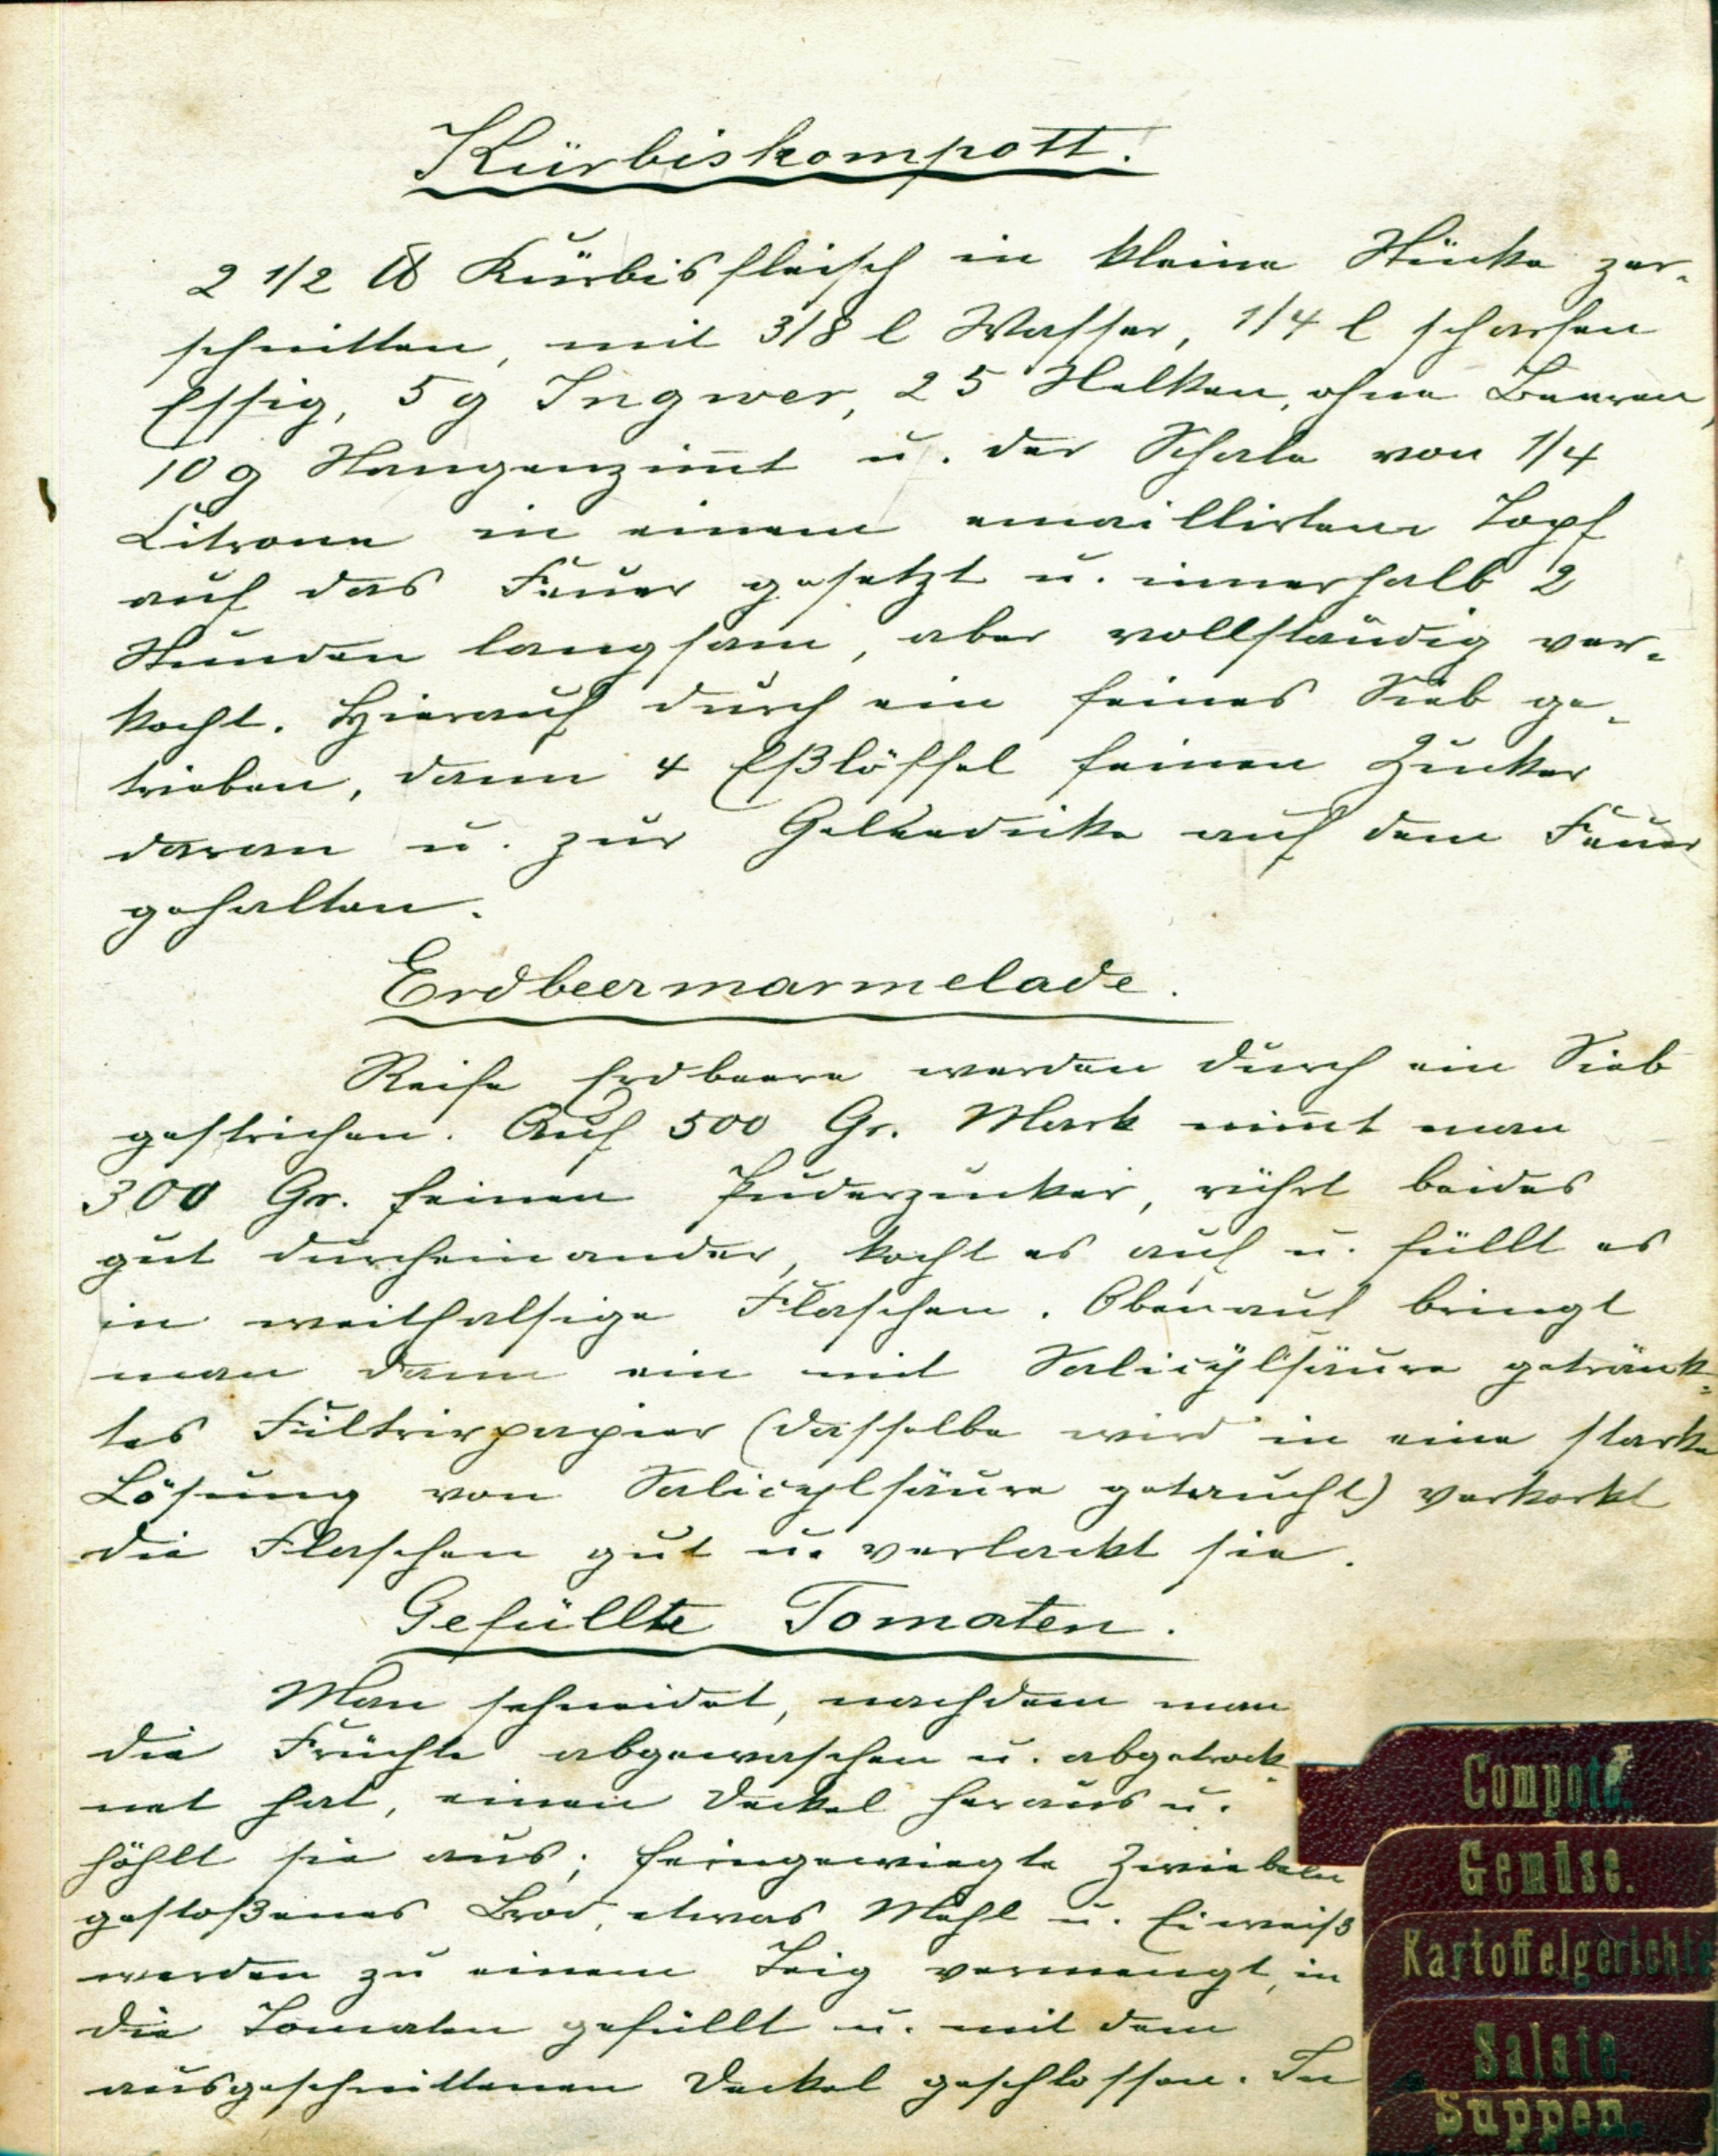 Kürbiskompott.
2 1/2 ℔ Kürbisfleisch in kleine Stücke zer-
schnitten, mit 3/8 l Wasser, 1/4 l scharfen
Essig, 5 g Ingwer, 25 Nelken, ohne Beeren,
10 g Stangenzim̄t u. der Schale von 1/4
Citrone in einem emaillirtem Topf
auf das Feuer gesetzt u. innerhalb 2
Stunden langsam, aber vollständig ver-
kocht. Hierauf durch ein feines Sieb ge-
trieben, dann 4 Eßlöffel feinen Zucker
daran u. zur Geleedicke auf dem Feuer
gehalten.
Erdbeermarmelade.
Reife Erdbeere werden durch ein Sieb
gestrichen. Auf 500 Gr. Mark nim̄t man
300 Gr. feinen Puderzucker, rührt beides
gut durcheinander, kocht es auf u. füllt es
in weithalsige Flaschen. Obenauf bringt
man dann ein mit Salicÿlsäure getränk-
tes Filtrirpapier (dasselbe wird in eine starke
Lösung von Salicylsäure getaucht) verkorkt
die Flaschen gut u. verlackt sie.
Gefüllte Tomaten.
Man schneidet, nachdem man
die Früchte abgewaschen u. abgetrock-
net hat, einen Deckel heraus u.
höhlt sie aus; feingewiegte Zwiebeln
gestoßenes Brod, etwas Mehl u. Eiweiß
werden zu einem Teig vermengt, in
die Tomaten gefüllt u. mit dem
ausgeschnittenen Deckel geschlossen. In
Compote.
Gemüse.
Kartoffelgerichte
Salate.
Suppen.